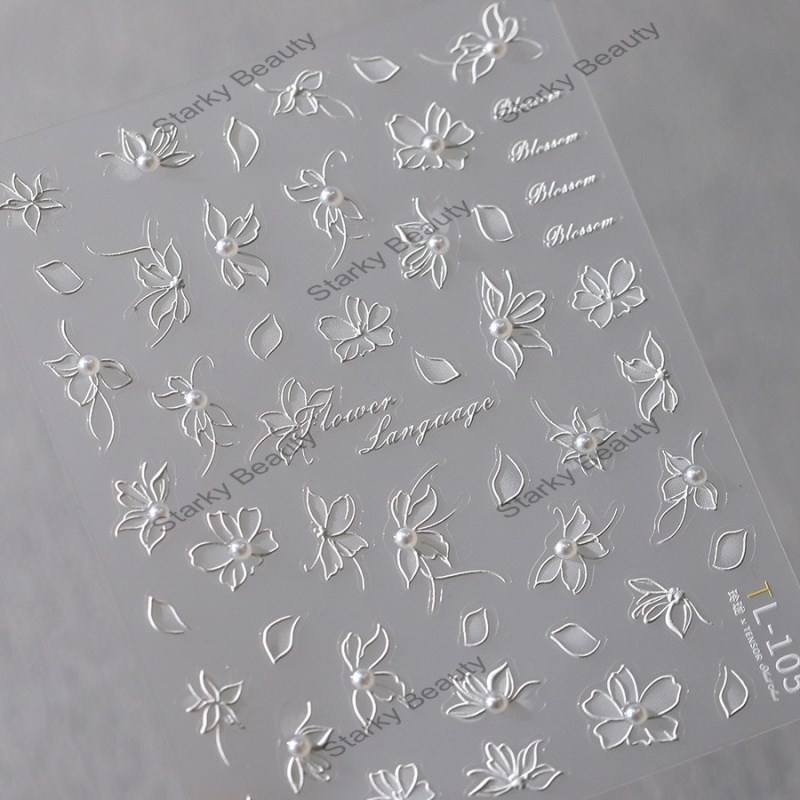 Starky Beauty
Starky Beauty
Blossom
Blossom
Blossom
Blossom
Starky Beauty
Flower
Language
Starky Beauty
Starky Beauty
TL-105
× TENSOR
Starky Beauty